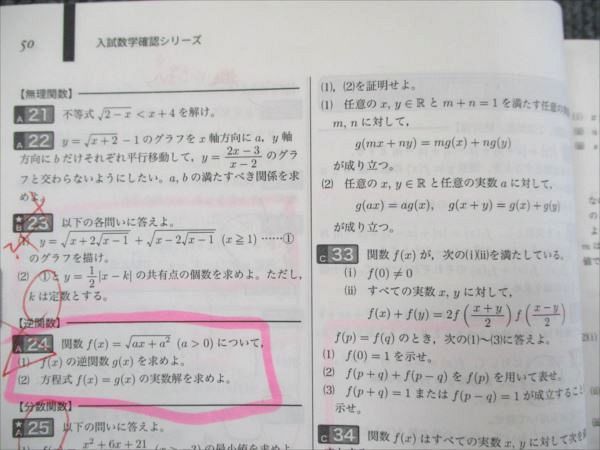 50
入試数学確認シリーズ
【無理関数】
A 21 不等式 √(2−x) < x+4 を解け。
A 22 y = √(x+2) − 1 のグラフを x 軸方向に a, y 軸
方向に b だけそれぞれ平行移動して, y = (2x−3)/(x−2) のグラ
フと交わらないようにしたい。a, b の満たすべき関係を求
めよ。
★B 23 以下の各問いに答えよ。
(1) y = √(x+2√(x−1)) + √(x−2√(x−1)) (x ≧ 1) ……①
のグラフを描け。
(2) ①と y = 1/2 |x−k| の共有点の個数を求めよ。ただし,
k は定数とする。
【逆関数】
A 24 関数 f(x) = √(ax+a²) (a > 0) について,
(1) f(x) の逆関数 g(x) を求めよ。
(2) 方程式 f(x) = g(x) の実数解を求めよ。
【分数関数】
★A 25 以下の問いに答えよ。
x²+6x+21
(x > −3) の最小値を求め
(1), (2)を証明せよ。
(1) 任意の x, y ∈ ℝ と m+n = 1 を満たす任意の
m, n に対して,
g(mx+ny) = mg(x)+ng(y)
が成り立つ。
(2) 任意の x, y ∈ ℝ と任意の実数 a に対して,
g(ax) = ag(x), g(x+y) = g(x)+g(y)
が成り立つ。
C 33 関数 f(x) が, 次の(i)(ii)を満たしている。
(i) f(0) ≠ 0
(ii) すべての実数 x, y に対して,
f(x)+f(y) = 2f((x+y)/2) f((x−y)/2)
f(p) = f(q) のとき, 次の(1)〜(3)に答えよ。
(1) f(0) = 1 を示せ。
(2) f(p+q)+f(p−q) を f(p) を用いて表せ。
(3) f(p+q) = 1 または f(p−q) = 1 が成立すること
示せ。
C 34 関数 f(x) はすべての実数 x, y に対して次を